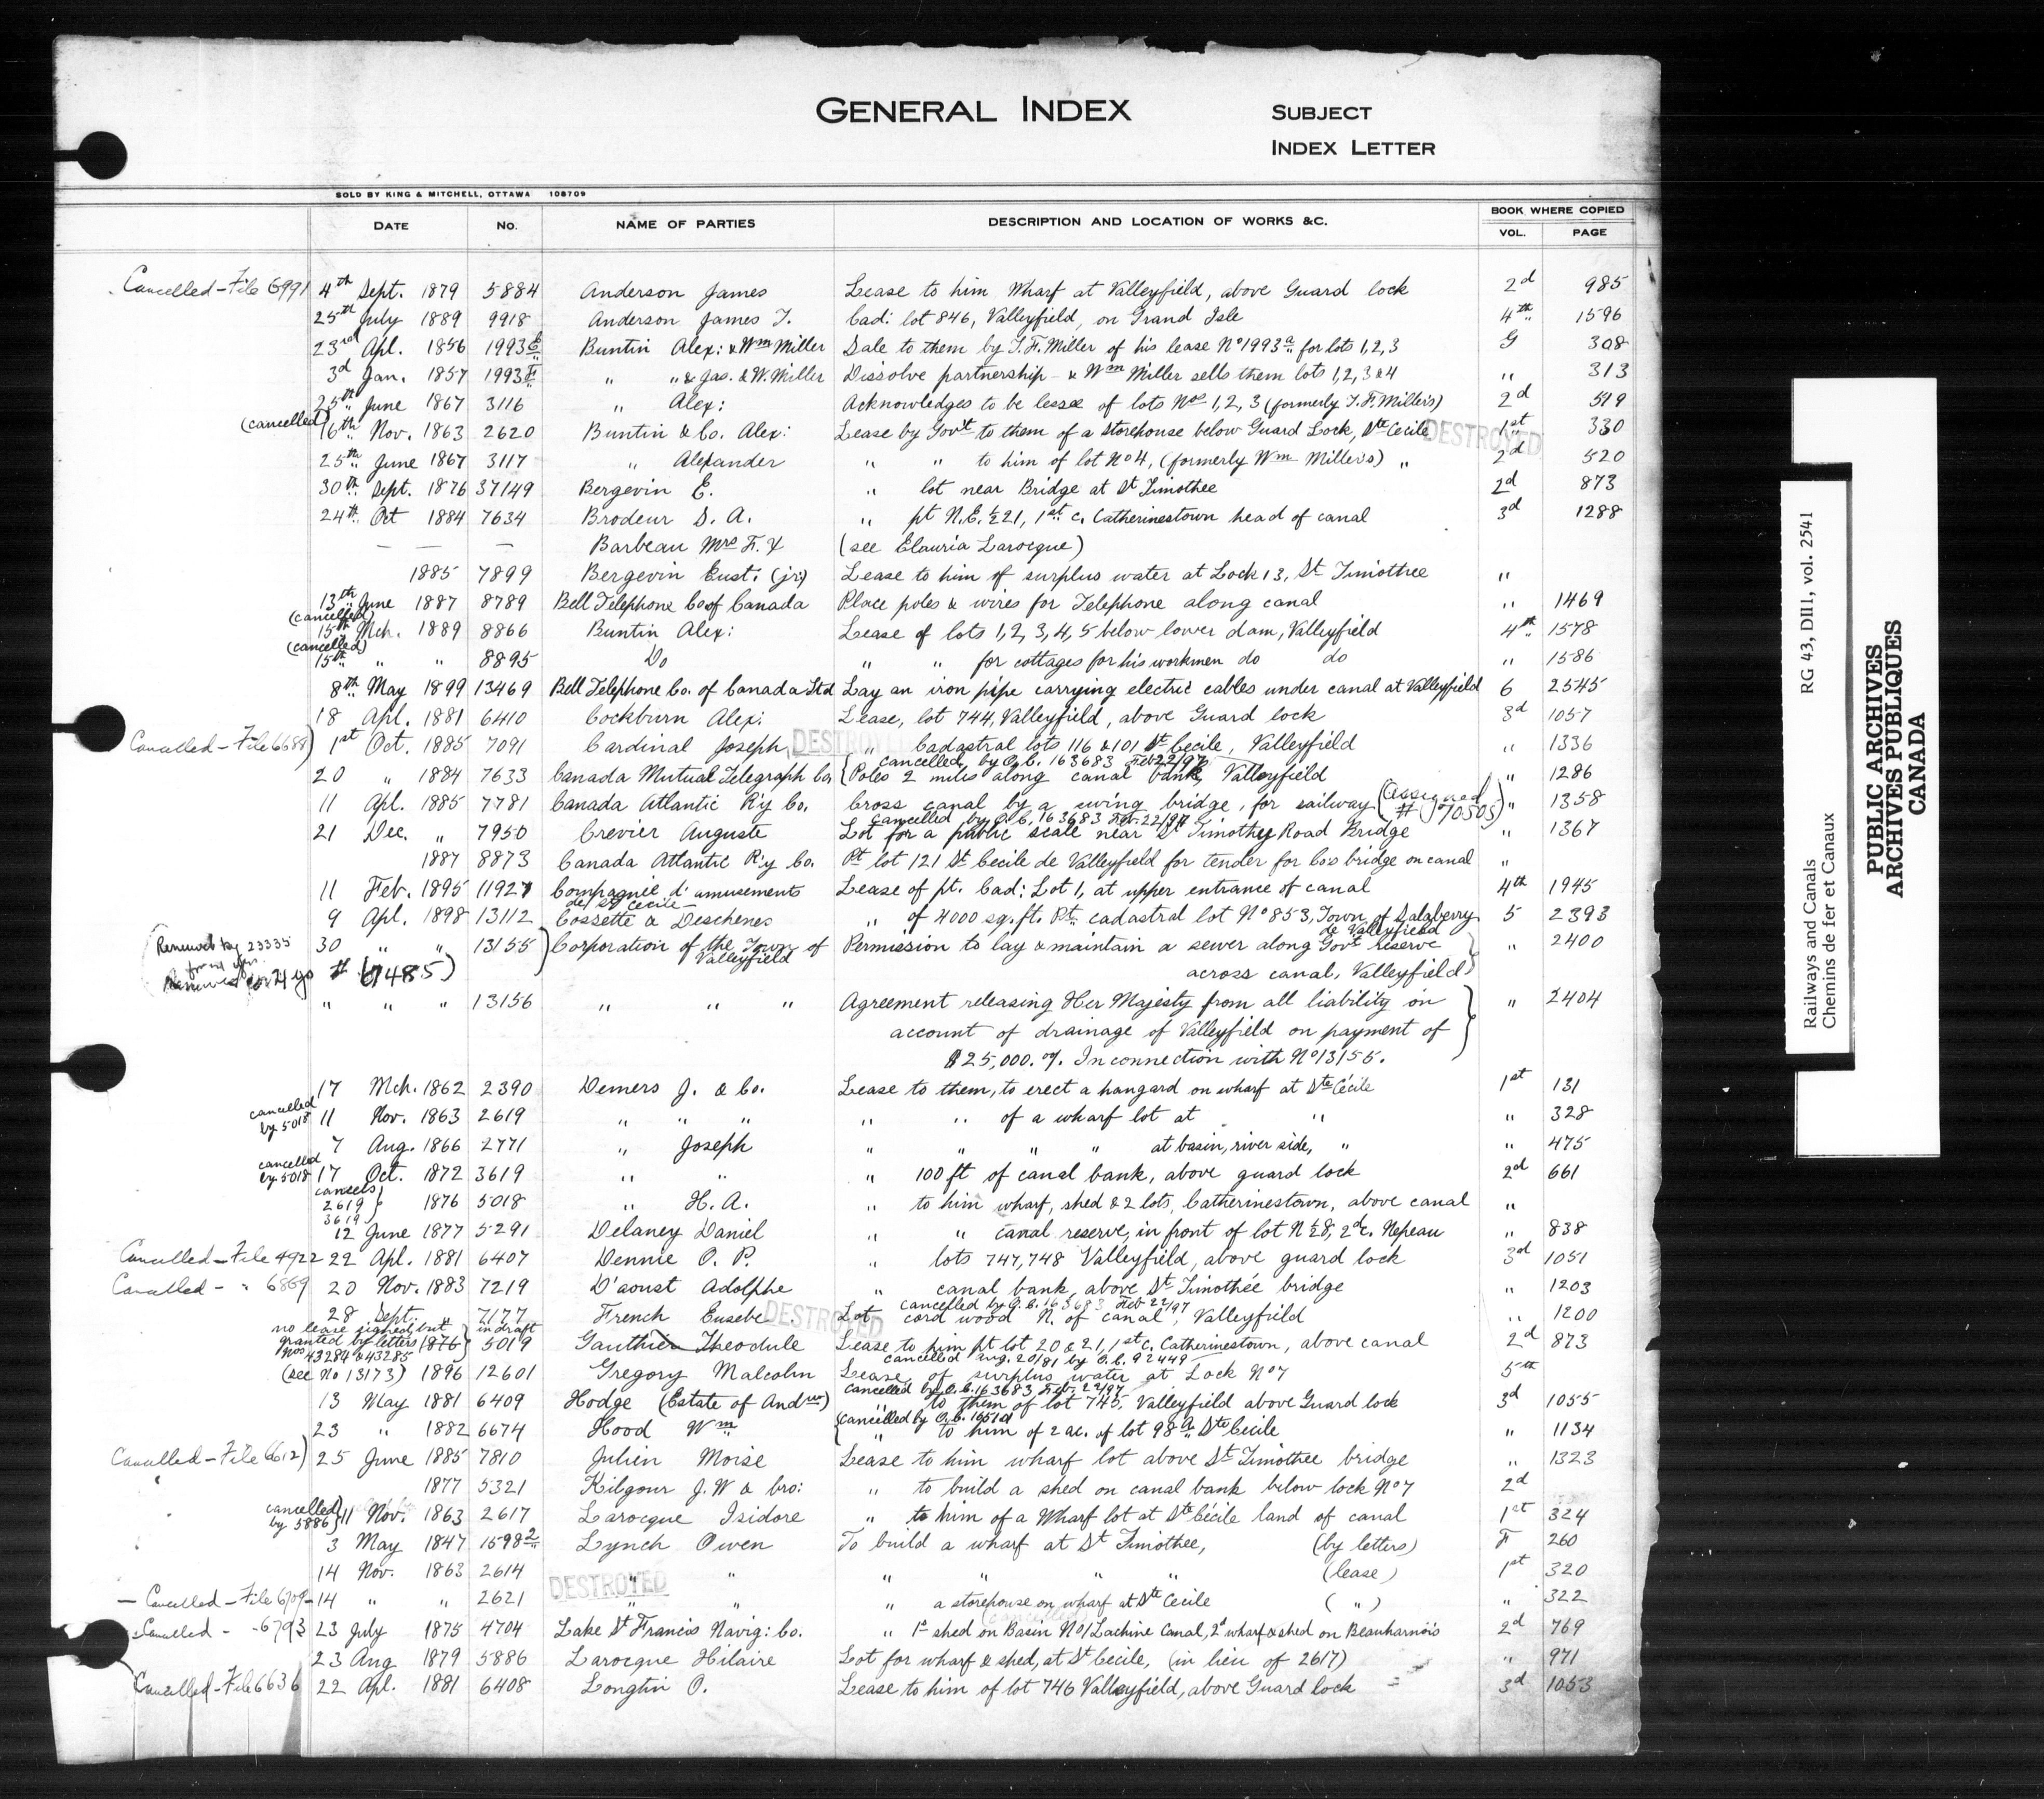 GENERAL INDEX
SUBJECT
INDEX LETTER
SOLD BY KING & MITCHELL, OTTAWA 108709
DATE No. NAME OF PARTIES DESCRIPTION AND LOCATION OF WORKS &C. BOOK WHERE COPIED
VOL. PAGE
Cancelled - File 6991 4th Sept. 1879 5884 Anderson James Lease to him Wharf at Valleyfield, above Guard lock 2d 985
25th July 1889 9918 Anderson James T. Cad: lot 846, Valleyfield, on Grand Isle 4th 1596
23rd Apl. 1856 1993 E Buntin Alex: & Wm Miller Sale to them by T. F. Miller of his lease No 1993a for lots 1, 2, 3 G 308
3d Jan. 1857 1993 F " " & Jas. & W. Miller Dissolve partnership - & Wm Miller sells them lots 1, 2, 3 & 4 " 313
25th June 1867 3116 " Alex: Acknowledges to be lessee of lots Nos 1, 2, 3 (formerly T. F. Miller's) 2d 519
(cancelled) 16th Nov. 1863 2620 Buntin & Co. Alex: Lease by Govt to them of a storehouse below Guard Lock, Ste Cecile DESTROYED 1st 330
25th June 1867 3117 " Alexander " " to him of lot No 4, (formerly Wm Miller's) " 2d 520
30th Sept. 1876 37149 Bergevin E. " lot near Bridge at St Timothee 2d 873
24th Oct 1884 7634 Brodeur S. A. " pt N.E. ½ 21, 1st c. Catherinestown head of canal 3d 1288
— — — Barbeau Mrs F. X (see Elauria Larocque)
1885 7899 Bergevin Eust. (jr:) Lease to him of surplus water at Lock 13, St Timothee "
13th June 1887 8789 Bell Telephone Co of Canada Place poles & wires for Telephone along canal " 1469
(cancelled) 15th Mch. 1889 8866 Buntin Alex: Lease of lots 1, 2, 3, 4, 5 below lower dam, Valleyfield 4th 1578
(cancelled) 15th " " 8895 Do " " for cottages for his workmen do do " 1586
8th May 1899 13469 Bell Telephone Co. of Canada Ltd Lay an iron pipe carrying electric cables under canal at Valleyfield 6 2545
18 Apl. 1881 6410 Cockburn Alex: Lease, lot 744, Valleyfield, above Guard lock 3d 1057
Cancelled - File 6688) 1st Oct. 1885 7091 Cardinal Joseph DESTROYED " Cadastral lots 116 & 101 St Cecile, Valleyfield " 1336
cancelled, by O.C. 163683 Feb 22/97
20 " 1884 7633 Canada Mutual Telegraph Co. {Poles 2 miles along canal bank, Valleyfield " 1286
11 Apl. 1885 7781 Canada Atlantic R'y Co. Cross canal by a swing bridge, for railway (Assigned # 170505) " 1358
cancelled by O.C. 163683 Feb. 22/97
21 Dec. " 7950 Crevier Auguste Lot for a public scale near St Timothey Road Bridge " 1367
1887 8873 Canada Atlantic R'y Co. Pt lot 121 St Cecile de Valleyfield for tender for Cos bridge on canal "
11 Feb. 1895 11927 Compagnie d'amusements Lease of pt. Cad: Lot 1, at upper entrance of canal 4th 1945
de St Cecile
9 Apl. 1898 13112 Cossette & Deschenes " of 4000 sq. ft. Pt. cadastral lot No 853, Town of Salaberry 5 2393
de Valleyfield
Renewed by 23335 30 " " 13155) Corporation of the Town of Permission to lay & maintain a sewer along Govt reserve } " 2400
Valleyfield across canal, Valleyfield
Renewed for 21 yrs # 67485)
" " " 13156 " " " Agreement releasing Her Majesty from all liability on } " 2404
account of drainage of Valleyfield on payment of
$25,000.00/. In connection with No 13155.
17 Mch. 1862 2390 Demers J. & Co. Lease to them, to erect a hangard on wharf at Ste Cécile 1st 131
cancelled by 5018 11 Nov. 1863 2619 " " " " " of a wharf lot at " " 328
7 Aug. 1866 2771 " Joseph " " " " at basin, river side, " " 475
cancelled by 5018 17 Oct. 1872 3619 " " " 100 ft of canal bank, above guard lock 2d 661
cancels 2619 3619 } 1876 5018 " H. A. " to him wharf, shed & 2 lots, Catherinestown, above canal "
12 June 1877 5291 Delaney Daniel " " canal reserve, in front of lot N ½ 8, 2d c. Nepeau " 838
Cancelled - File 4922 22 Apl. 1881 6407 Dennie O. P. " lots 747, 748 Valleyfield, above guard lock 3d 1051
Cancelled - " 6869 20 Nov. 1883 7219 D'aoust Adolphe " canal bank, above St Timothée bridge " 1203
cancelled by O.C. 163683 Feb 22/97
28 Sept. 7177 French Eusebe DESTROYED Lot cord wood N. of canal, Valleyfield " 1200
in draft
no lease signed, but granted by letters Nos 43284 & 43285 } 1876 5019 Gauthier Theodule Lease to him pt lot 20 & 21, 1st c. Catherinestown, above canal 2d 873
cancelled Aug. 20/81 by O.C. 92449
(see No 13173) 1896 12601 Gregory Malcolm Lease of surplus water at Lock No 7 5th
cancelled by O.C. 163683 Feb. 22/97
13 May 1881 6409 Hodge (Estate of Andw) " to them of lot 745, Valleyfield above Guard lock 3d 1055
cancelled by O.C.
23 " 1882 6674 Hood Wm { " to him of 2 ac. of lot 98a Ste Cecile " 1134
Cancelled - File 6612) 25 June 1885 7810 Julien Moise Lease to him wharf lot above St Timothee bridge " 1323
1877 5321 Kilgour J. W & bro: " to build a shed on canal bank below lock No 7 2d
cancelled by 5886 } 11 Nov. 1863 2617 Larocque Isidore " to him of a Wharf lot at Ste Cécile land of canal 1st 324
3 May 1847 1598 2 Lynch Owen To build a wharf at St Timothee, (by letters) F 260
14 Nov. 1863 2614 " " " " " (lease) 1st 320
— Cancelled - File 6709 - 14 " " 2621 DESTROYED " " " a storehouse on wharf at Ste Cecile ( " ) " 322
(cancelled)
Cancelled - - 6793 23 July 1875 4704 Lake St Francis Navig: Co. " 1st shed on Basin No 1 Lachine Canal, 2d wharf & shed on Beauharnois 2d 769
23 Aug 1879 5886 Larocque Hilaire Lot for wharf & shed, at St Cecile, (in lieu of 2617) " 971
Cancelled - File 6636 22 Apl. 1881 6408 Longtin O. Lease to him of lot 746 Valleyfield, above Guard lock 3d 1053
RG 43, DIII1, vol. 2541
Railways and Canals
Chemins de fer et Canaux
PUBLIC ARCHIVES
ARCHIVES PUBLIQUES
CANADA